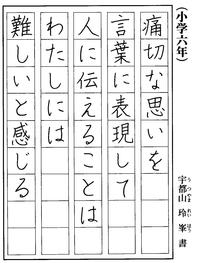 (小学六年)
痛切な思いを
言葉に表現して
人に伝えることは
わたしには
難しいと感じる
宇都山玲峯書
うつやまれいほう